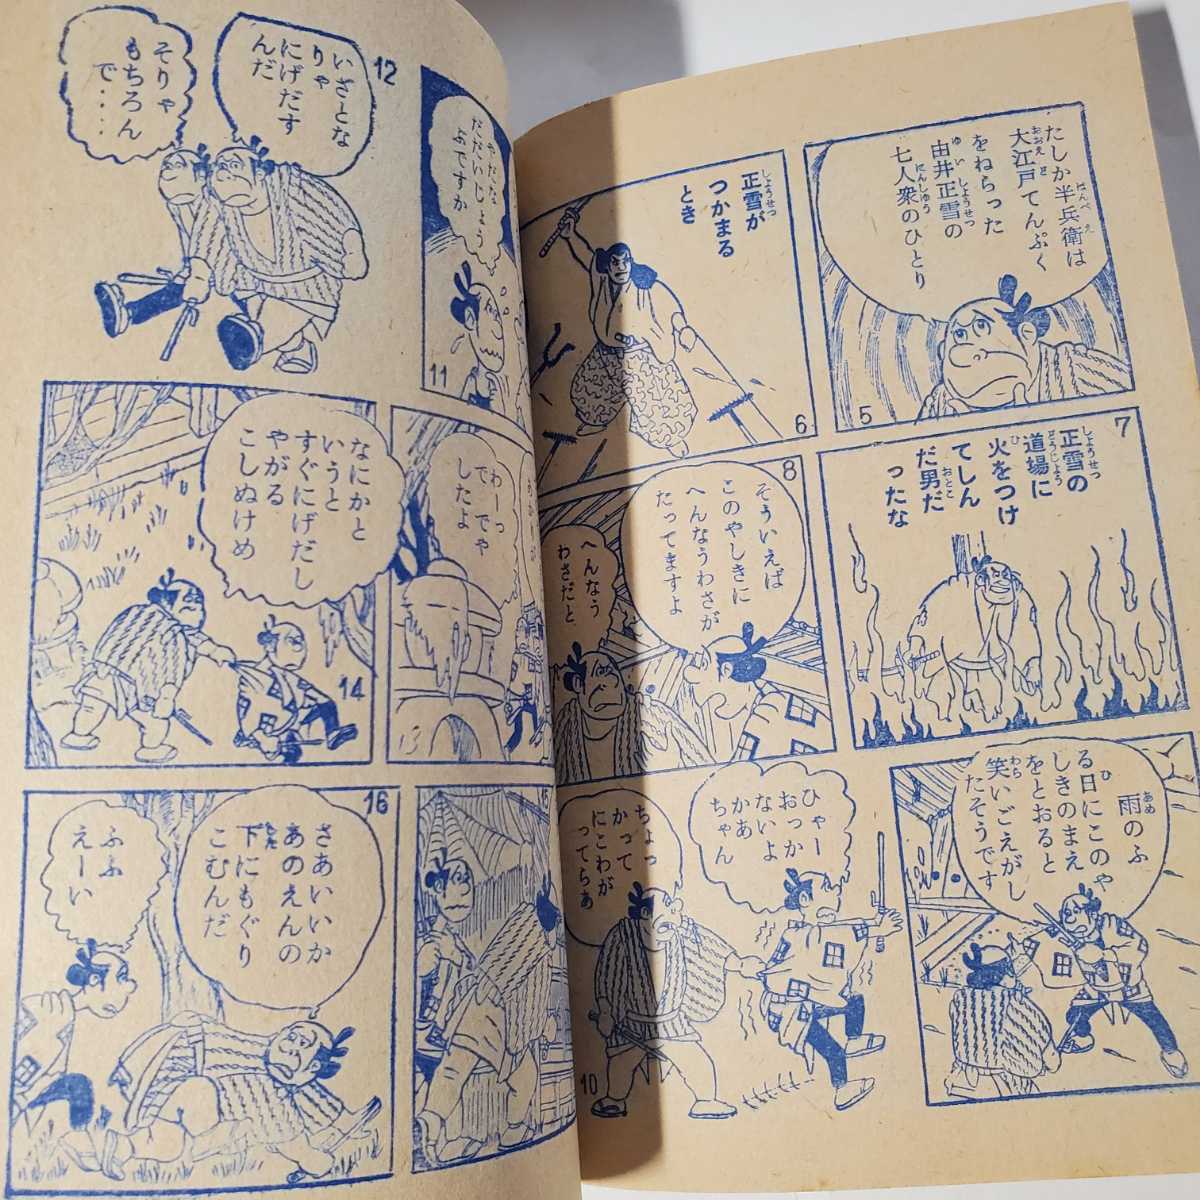 たしか半兵衛は
大江戸てんぷく
をねらった
由井正雪の
七人衆のひとり
5
正雪が
つかまる
とき
6
7
正雪の
道場に
火をつけ
てしん
だ男だ
ったな
8
そういえば
このやしきに
へんなうわさが
たってますよ
へんなう
わさだと
雨のふ
る日にこのや
しきのまえ
をとおると
笑いごえがし
たそうです
ひゃー
おっか
ないよ
かあ
ちゃん
ちょっ
かって
にこわが
ってらあ
10
やだな
だだいじょう
ぶですか
11
12
いざとな
りゃ
にげだす
んだ
そりゃ
もちろん
で・・・・
わーっ
でてゃ
したよ
なにかと
いうと
すぐにげだし
やがる
こしぬけめ
14
16
さあいいか
あのえんの
下にもぐり
こむんだ
ふふ
えーい